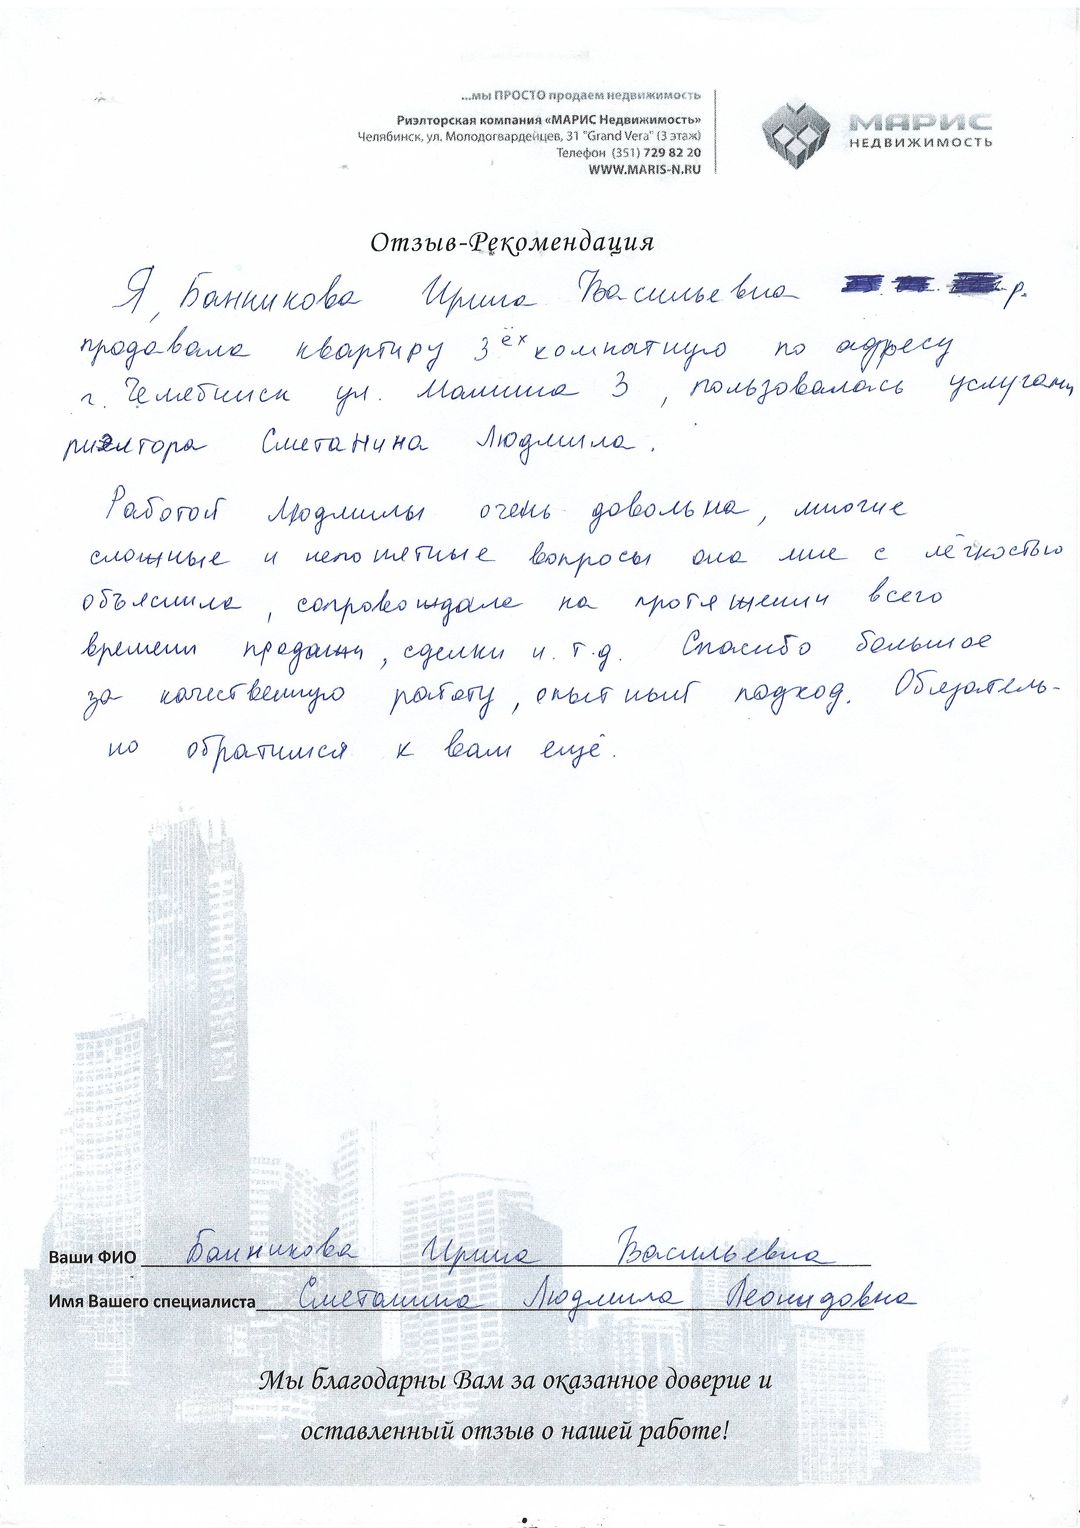 ...мы ПРОСТО продаем недвижимость
Риэлторская компания «МАРИС Недвижимость»
Челябинск, ул. Молодогвардейцев, 31 "Grand Vera" (3 этаж)
Телефон (351) 729 82 20
WWW.MARIS-N.RU
МАРИС
НЕДВИЖИМОСТЬ
Отзыв-Рекомендация
Я, Банникова Ирина Васильевна р.
продавала квартиру 3ёх комнатную по адресу
г. Челябинск ул. Мамина 3, пользовалась услугами
риэлтора Сметанина Людмила.
Работой Людмилы очень довольна, многие
сложные и непонятные вопросы она мне с лёгкостью
объяснила, сопровождала на протяжении всего
времени продажи, сделки и.т.д. Спасибо большое
за качественную работу, опытный подход. Обязатель-
но обратимся к вам ещё.
Ваши ФИО Банникова Ирина Васильевна
Имя Вашего специалиста Сметанина Людмила Леонидовна
Мы благодарны Вам за оказанное доверие и
оставленный отзыв о нашей работе!